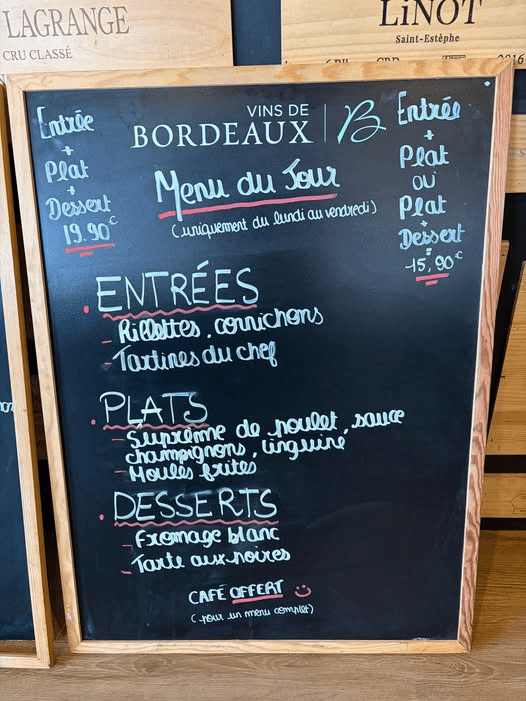 LAGRANGE
CRU CLASSÉ
LiNOT
Saint-Estèphe
2016
VINS DE
BORDEAUX
Entrée
+
Plat
+
Dessert
19.90€
Entrée
+
Plat
OU
Plat
+
Dessert
=
15,90€
Menu du Jour
(uniquement du lundi au vendredi)
ENTRÉES
- Rillettes, cornichons
- Tartines du chef
PLATS
- Suprême de poulet, sauce
champignons, linguine
- Moules frites
DESSERTS
- Fromage blanc
- Tarte aux poires
CAFÉ OFFERT
(pour un menu complet)